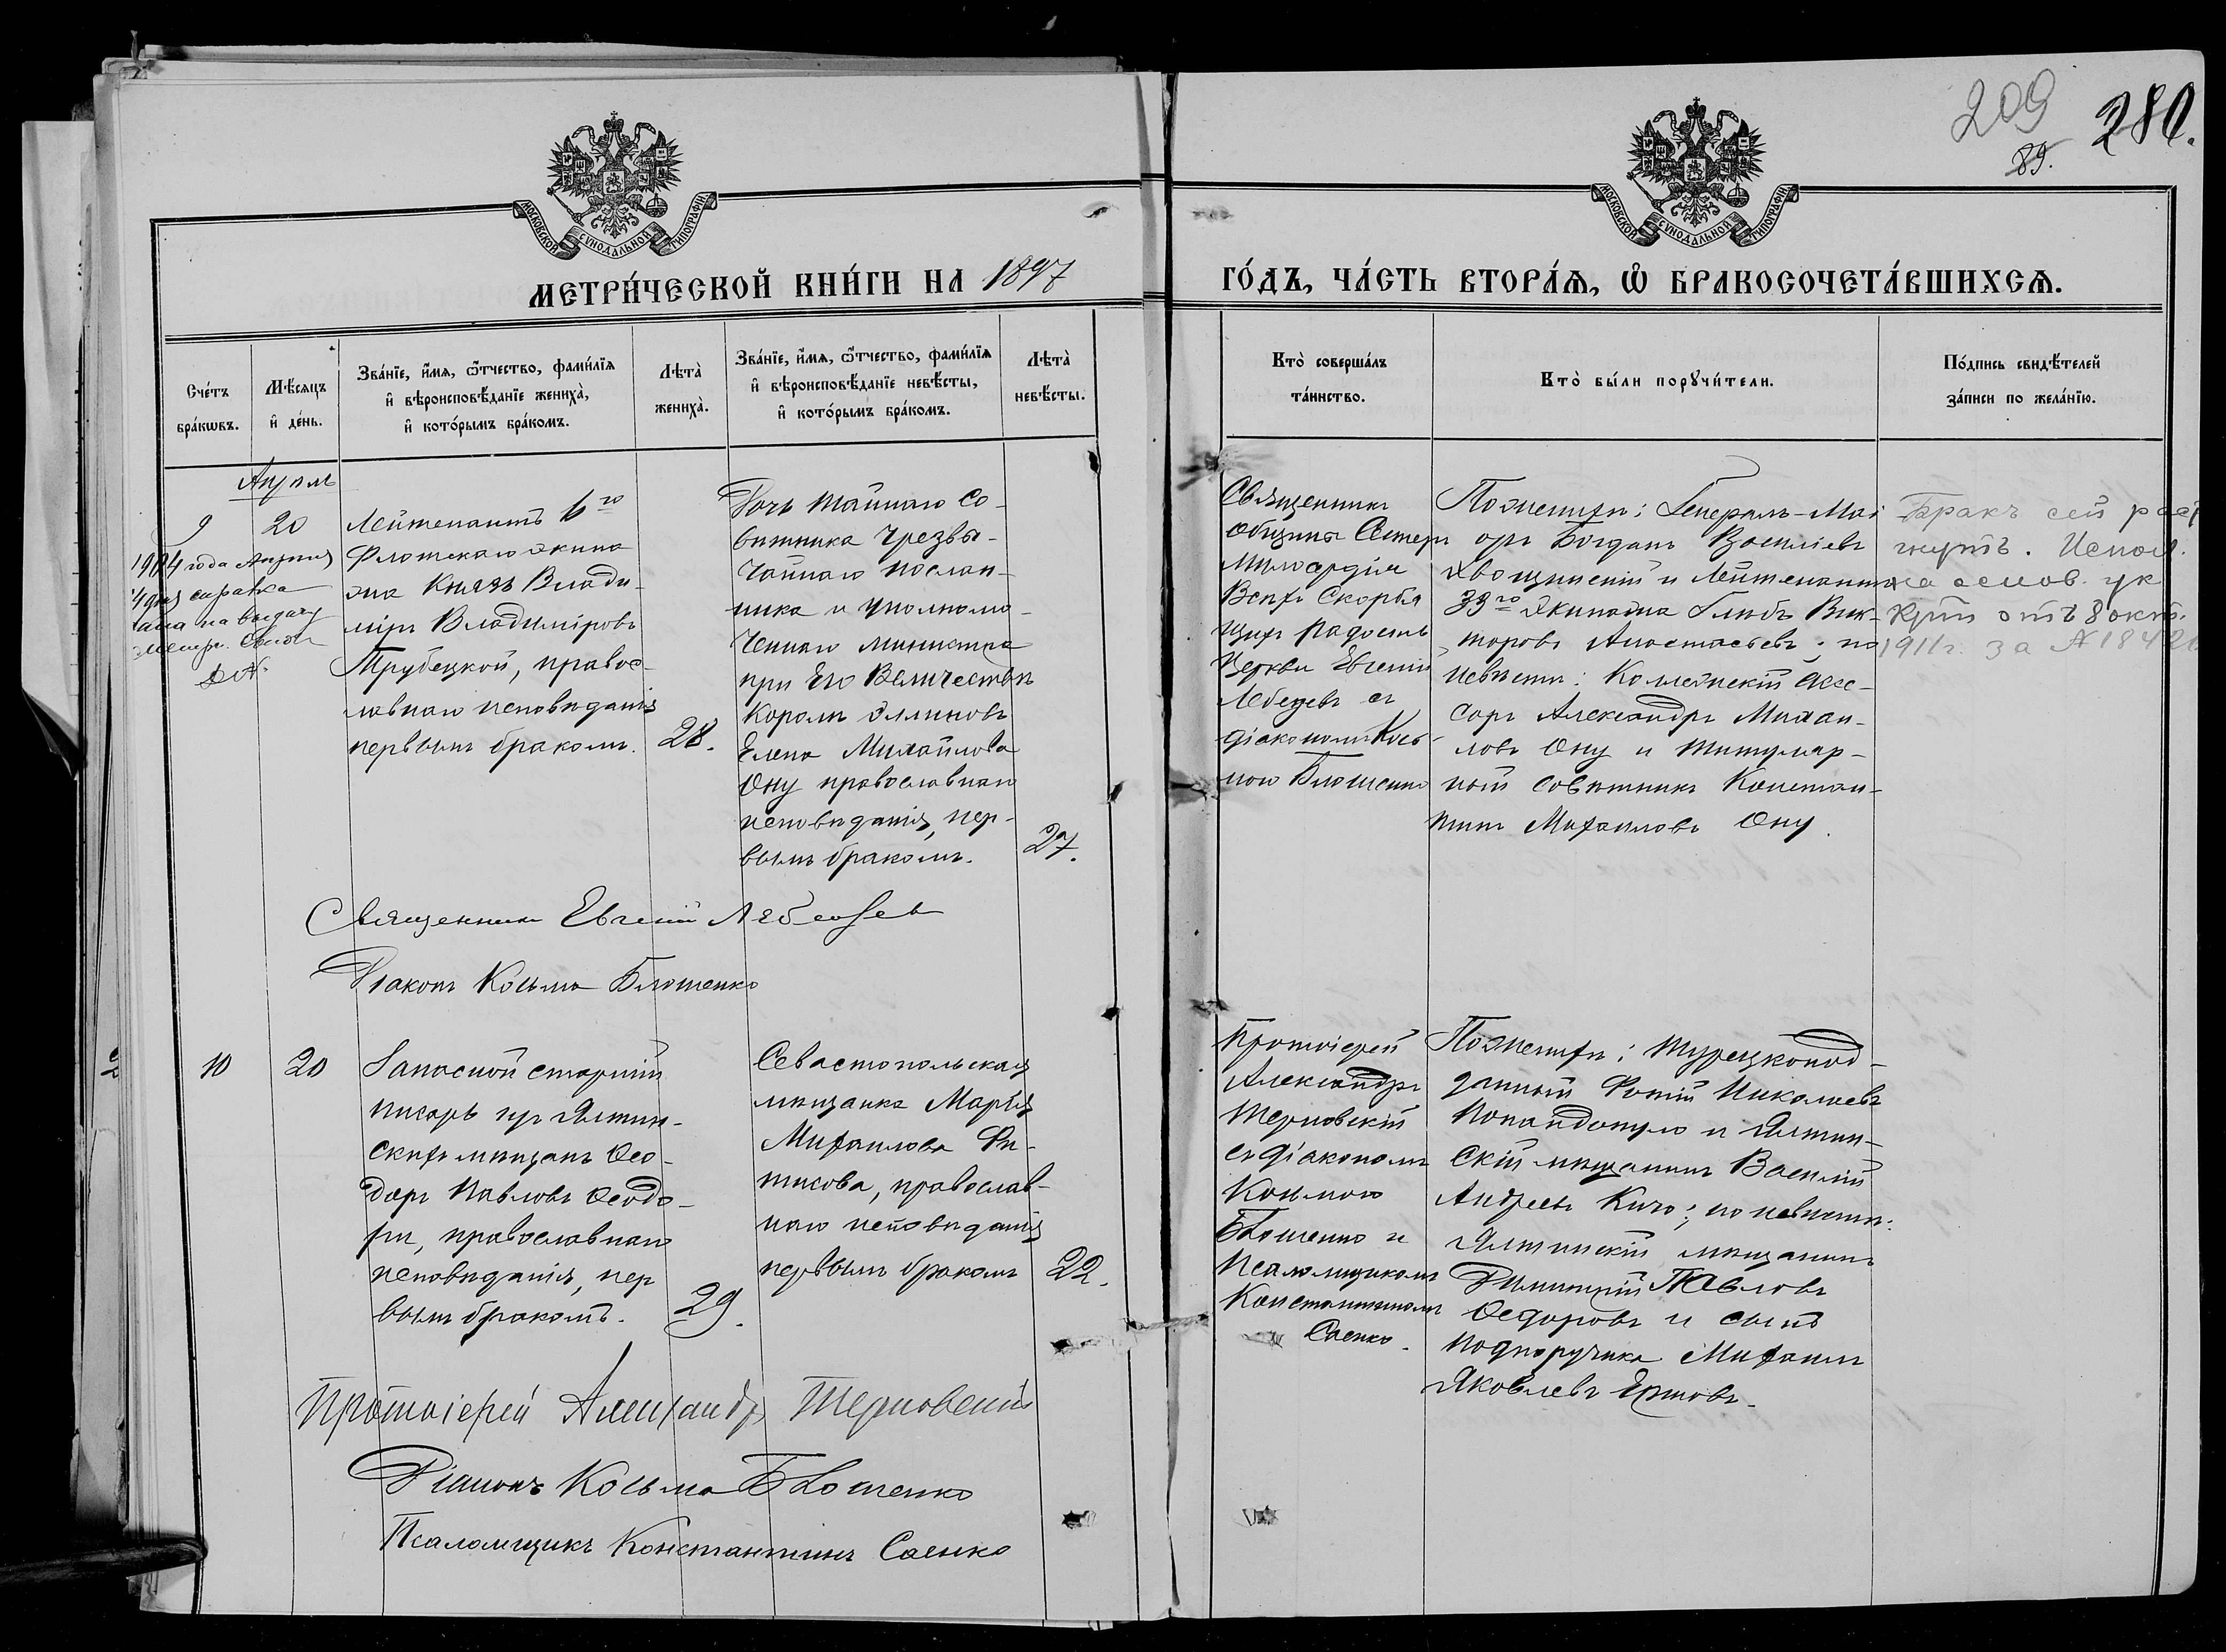 209
280.
89.
МОСКОВСКОЙ СѴНОДАЛЬНОЙ ТИПОГРАФІИ
МОСКОВСКОЙ СѴНОДАЛЬНОЙ ТИПОГРАФІИ
МЕТРИ́ЧЕСКОЙ КНИ́ГИ НА 1897
ГО́ДЪ, ЧА́СТЬ ВТОРА́Ѧ, Ѽ БРАКОСОЧЕТА́ВШИХСѦ.
Сче́тъ
бра́кѡвъ.
Мѣ́сѧцъ
и҆ де́нь.
Зва́нїе, и҆́мѧ, ѻ҆́тчество, фами́лїѧ
и҆ вѣроисповѣ́данїе жениха̀,
и҆ кото́рымъ бра́комъ.
Лѣта̀
жениха̀.
Зва́нїе, и҆́мѧ, ѻ҆́тчество, фами́лїѧ
и҆ вѣроисповѣ́данїе невѣ́сты,
и҆ кото́рымъ бра́комъ.
Лѣта̀
невѣ́сты.
Кто̀ соверша́лъ
та́инство.
Кто̀ бы́ли порꙋчи́тели.
По́дпись свидѣ́телей
за́писи по жела́нїю.
Апрѣль
9
20
года Апрѣля
справка
на выдачу
Лейтенантъ
Флотскаго экипа
жа Князь Влади-
міръ Владиміровъ
Трубецкой, правос-
лавнаго исповѣданія
первымъ бракомъ.
28.
Дочь тайнаго Со-
вѣтника Чрезвы-
чайнаго послан-
ника и уполномо-
ченнаго министра
при Его Величествѣ
Королѣ Эллиновъ
Елена Михайлова
Ону православнаго
исповѣданія, пер-
вымъ бракомъ.
27.
Священникъ
общины Сестеръ
Милосердія
Всѣхъ Скорбя
щихъ радость
Церкви Евгеній
Лебедевъ съ
діакономъ Козь-
мою Блошенко
По женихѣ: Генералъ-Маі
оръ Богданъ Васильевъ
Хвощинскій и Лейтенантъ
33го Экипажа Глѣбъ Вик-
торовъ Анастасьевъ; по
невѣстѣ: Коллежскій Асес-
соръ Александръ Михаи-
ловъ Ону и титуляр-
ный совѣтникъ Констан-
тинъ Михаиловъ Ону.
Бракъ сей раст
гнутъ. Испол.
на основ. ук
отъ 8 окт.
1911г. за №
Священникъ Евгеній Лебедевъ
Діаконъ Козьма Блошенко
10
20
Запасной старшій
писарь изъ Ялтин-
скихъ мѣщанъ Ѳео-
доръ Павловъ Ѳеодо-
ри, православнаго
исповѣданія, пер
вымъ бракомъ.
29.
Севастопольская
мѣщанка Марія
Михаилова Фи-
тисова, православ-
наго исповѣданія
первымъ бракомъ
22.
Протоіерей
Александръ
Терновскій
съ діакономъ
Козьмою
Блошенко и
Псаломщикомъ
Константиномъ
Саенко.
По женихѣ: Турецкопод-
данный Фотій Николаевъ
Попандопуло и Ялтин-
скій мѣщанинъ Василій
Андреевъ Кичо; по невѣстѣ:
Ялтинскій мѣщанинъ
Димитрій Павловъ
Ѳедоровъ и сынъ
подпоручика Михаилъ
Яковлевъ Ершовъ.
Протоіерей Александръ Терновскій
Діаконъ Козьма Блошенко
Псаломщикъ Константинъ Саенко